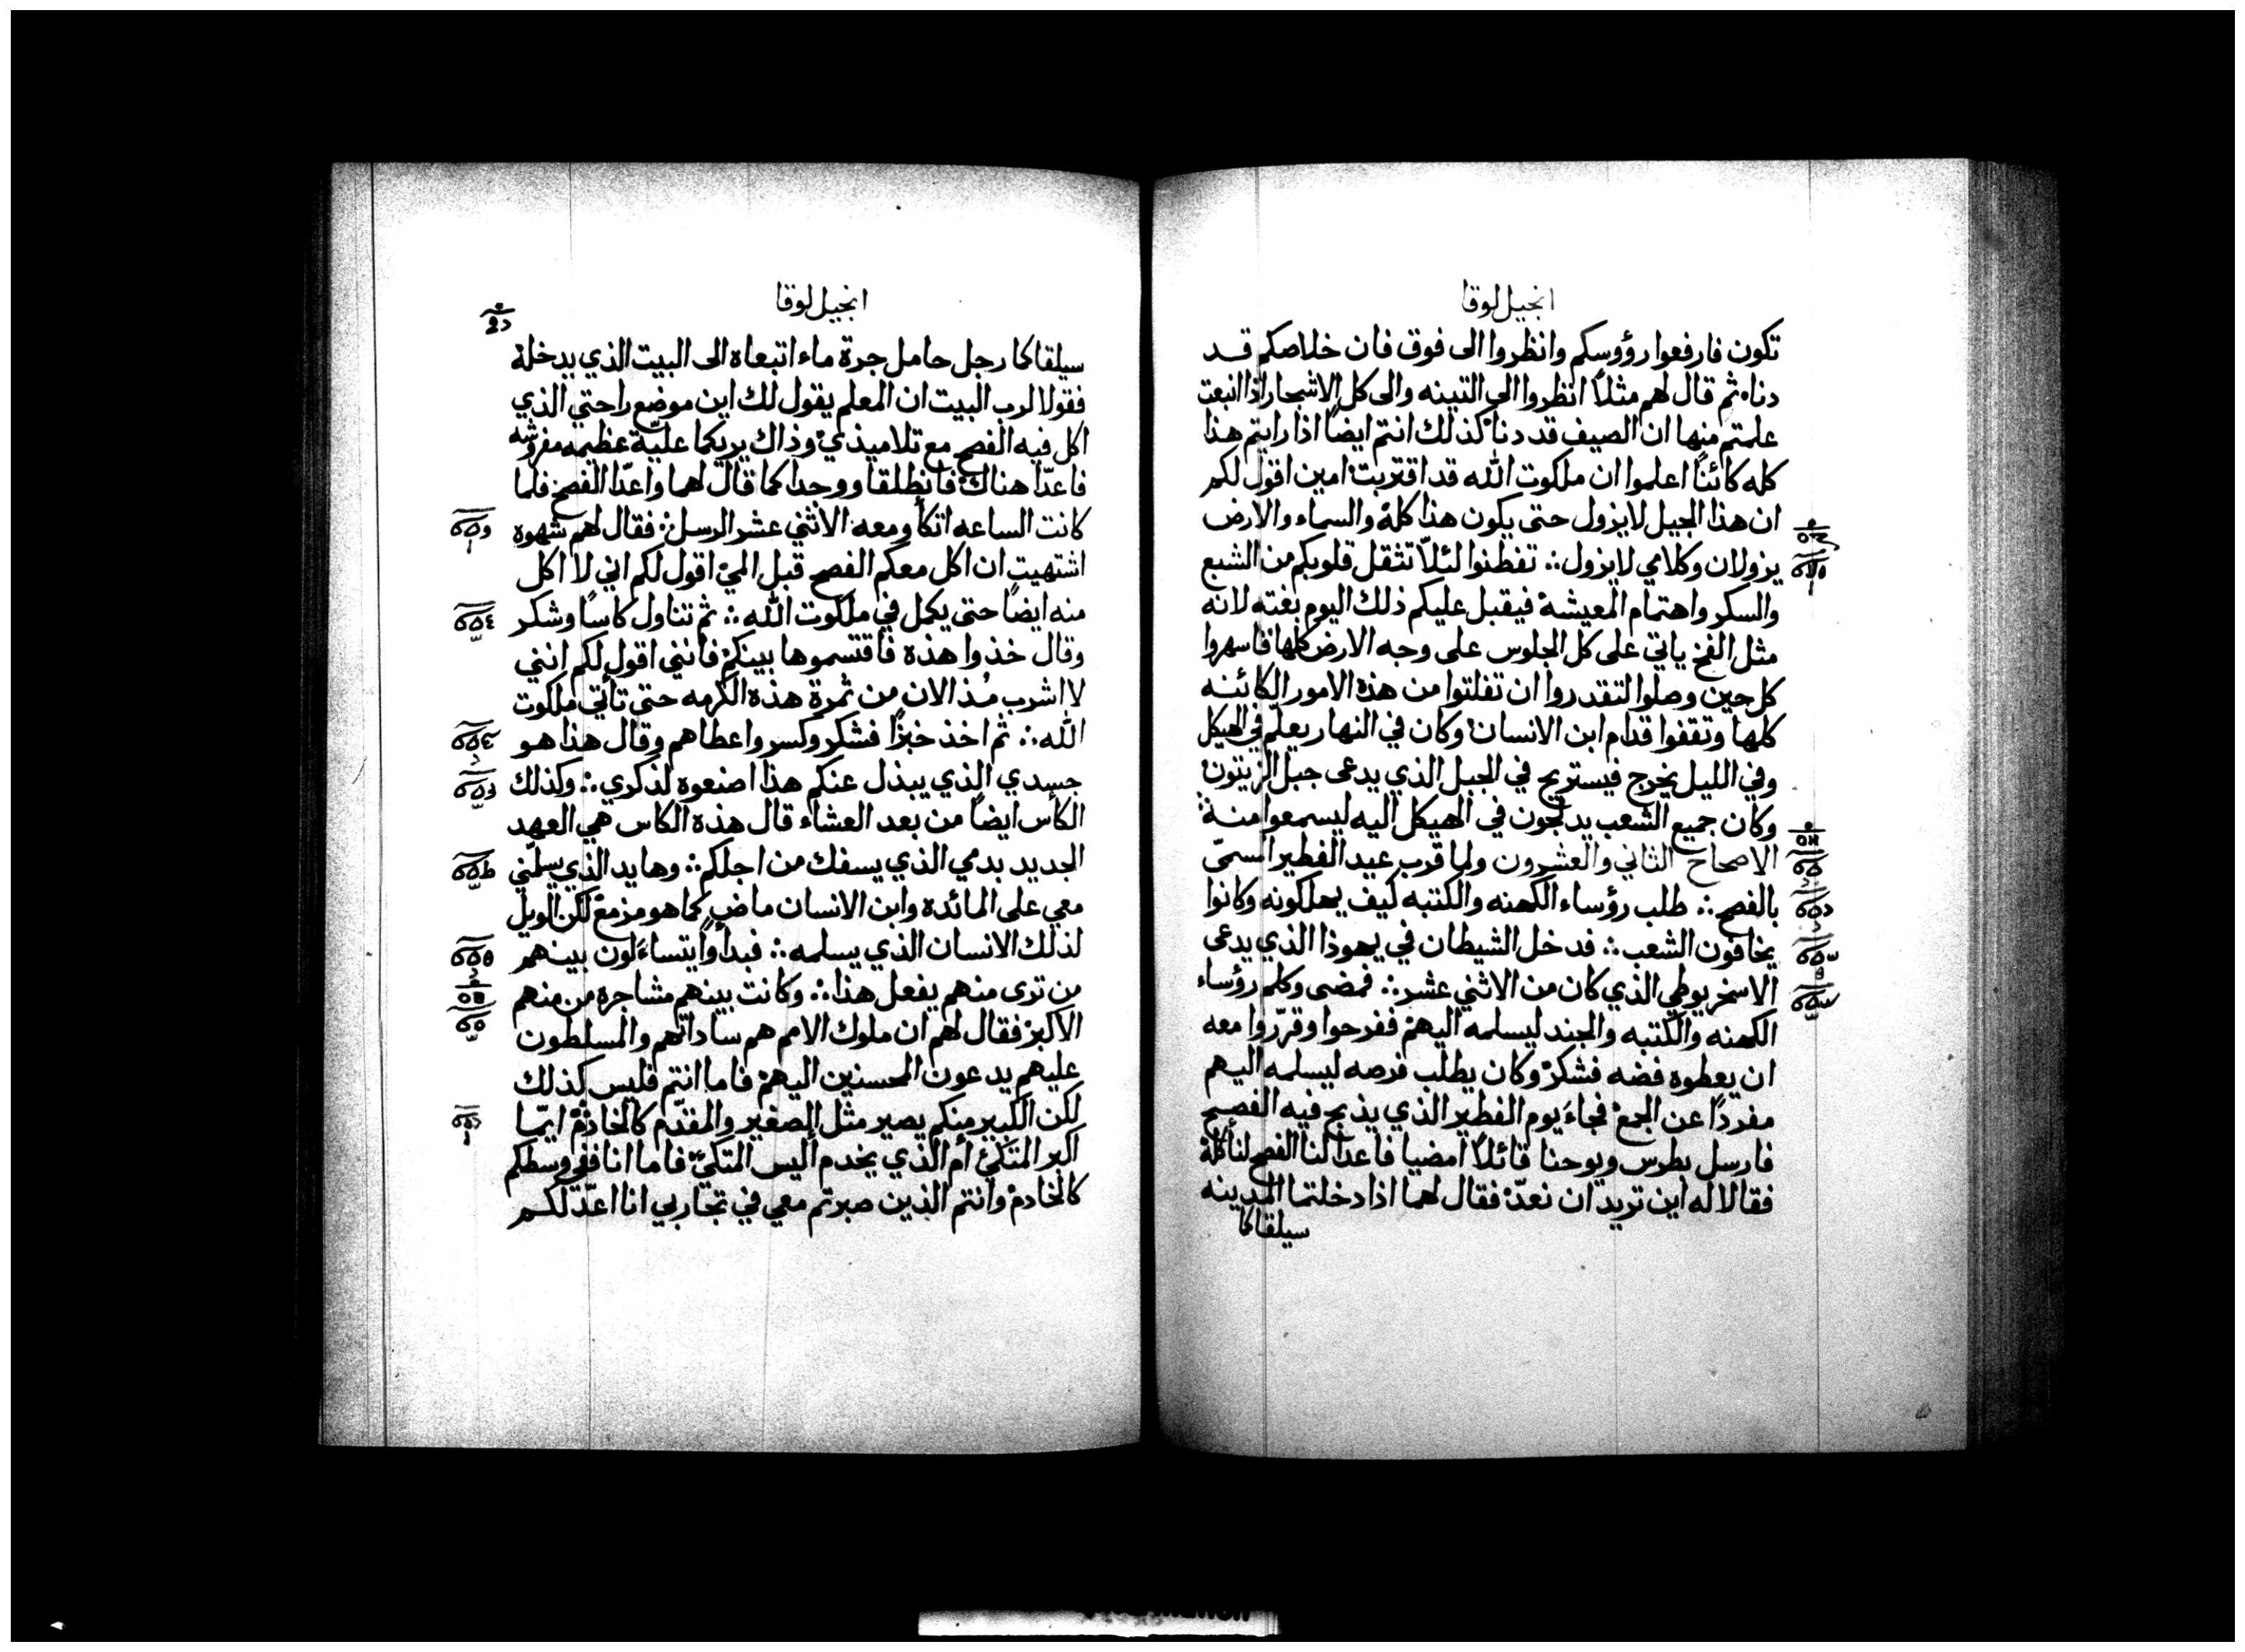 انجيل لوقا
تكون فارفعوا رؤوسكم وانظروا الى فوق فان خلاصكم قد
دناه ثم قال لهم مثلاً انظروا الى التينه والى كل الاشجار اذا انبعت
علمتم منها ان الصيف قد دنا كذلك انتم ايضاً اذا رايتم هذا
كله كائناً اعلموا ان ملكوت الله قد اقتربت امين اقول لكم
ان هذا الجيل لا يزول حتى يكون هذا كلهُ والسماء والارض
يزولان وكلامي لا يزول ∴ تفطنوا لئلّا تثقل قلوبكم من الشبع
والسكر واهتمام المعيشه فيقبل عليكم ذلك اليوم بغته لانه
مثل الفخ ياتي على كل الجلوس على وجه الارض كلها فاسهروا
كل حين وصلوا لتقدروا ان تفلتوا من هذه الامور الكائنه
كلها وتقفوا قدام ابن الانسان وكان في النهار يعلّم في الهيكل
وفي الليل يخرج فيستريح في الجبل الذي يدعى جبل الزيتون
وكان جميع الشعب يدلجون في الهيكل اليه ليسمعوا منه
الاصحاح الثاني والعشرون ولما قرب عيد الفطير المسمّى
بالفصح ∴ طلب رؤساء الكهنه والكتبه كيف يهلكونه وكانوا
يخافون الشعب ∴ فدخل الشيطان في يهوذا الذي يدعى
الاسخريوطي الذي كان من الاثني عشر ∴ فمضى وكلم رؤساء
الكهنه والكتبه والجند ليسلمه اليهم ففرحوا وقرّروا معه
ان يعطوه فضه فشكر وكان يطلب فرصه ليسلمه اليهم
مفرداً عن الجمع فجاءَ يوم الفطير الذي يذبح فيه الفصح
فارسل بطرس ويوحنا قائلاً امضيا فاعدا لنا الفصح لنأكلهُ
فقالا له اين تريد ان نعدّ فقال لهما اذا دخلتما المدينه
سيلقاكما
انجيل لوقا
سيلقاكما رجل حامل جرة ماء اتبعاه الى البيت الذي يدخله
فقولا لرب البيت ان المعلم يقول لك اين موضع راحتي الذي
اكل فيه الفصح مع تلاميذي وذاك يريكما عليّة عظيمه مفروشه
فاعدّا هناك فانطلقا ووجدا كما قال لهما واعدّا الفصح فلما
كانت الساعه اتكأ ومعه الاثني عشر الرسل ∴ فقال لهم شهوه
اشتهيت ان اكل معكم الفصح قبل المي اقول لكم اني لا اكل
منه ايضاً حتى يكمل في ملكوت الله ∴ ثم تناول كاساً وشكر
وقال خذوا هذه فاقتسموها بينكم فانني اقول لكم انني
لا اشرب مُذ الان من ثمرة هذه الكرمه حتى تأتي ملكوت
الله ∴ ثم اخذ خبزاً فشكر وكسر واعطاهم وقال هذا هو
جسدي الذي يبذل عنكم هذا اصنعوه لذكري ∴ وكذلك
الكأس ايضاً من بعد العشاء قال هذه الكاس هي العهد
الجديد بدمي الذي يسفك من اجلكم ∴ وها يد الذي يسلّمني
معي على المائدة وابن الانسان ماضٍ كما هو مزمع لكن الويل
لذلك الانسان الذي يسلمه ∴ فبدأوا يتساءَلون بينهم
من ترى منهم يفعل هذا ∴ وكانت بينهم مشاجرة من منهم
الاكبر فقال لهم ان ملوك الامم هم ساداتهم والمسلطون
عليهم يدعون المحسنين اليهم فاما انتم فليس كذلك
لكن الكبير منكم يصير مثل الصغير والمقدّم كالخادم ايّما
اكبر المتكئ ام الذي يخدم اليس المتكئ فاما انا ففي وسطكم
كالخادم وانتم الذين صبرتم معي في تجاربي انا اعدّ لكم